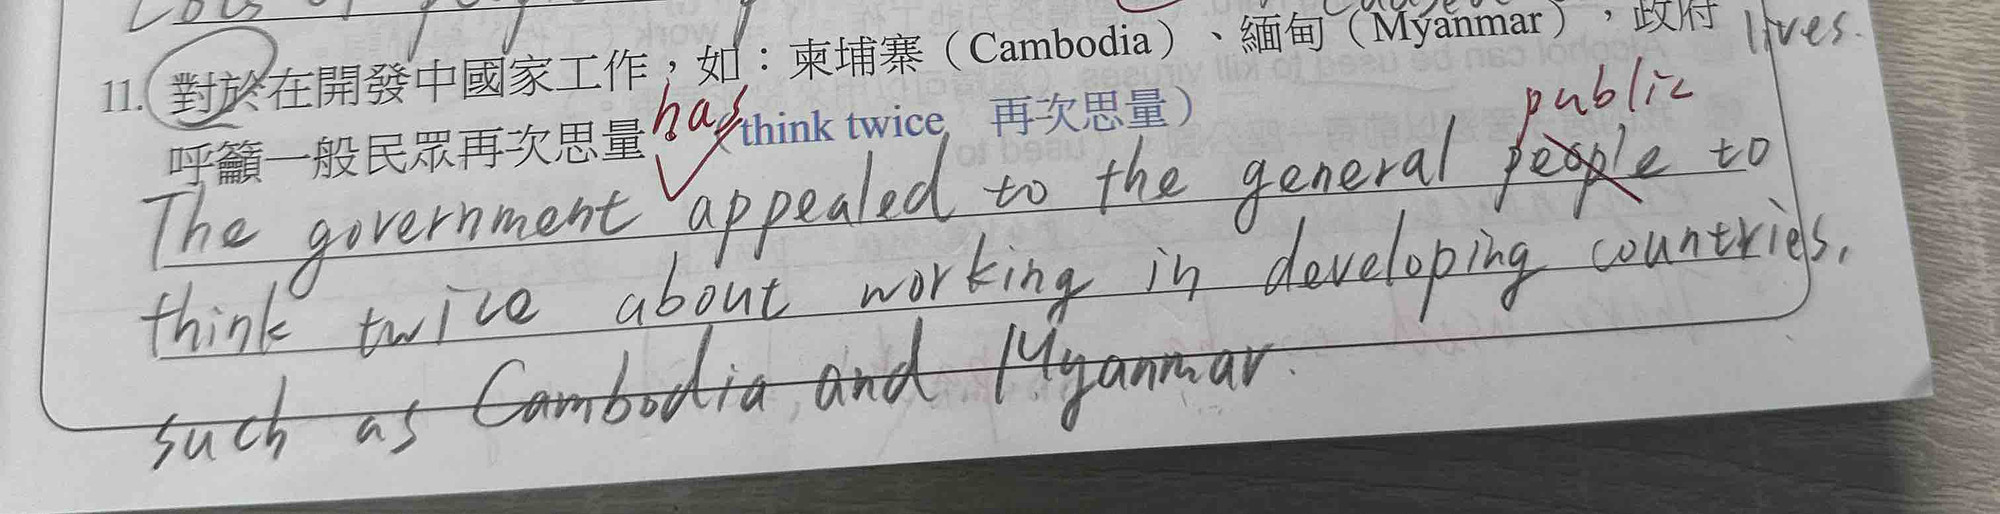 Lots of people
11. 對於在開發中國家工作，如：柬埔寨（Cambodia）、緬甸（Myanmar），政府 lives.
呼籲一般民眾再次思量（think twice 再次思量）
has public
The government appealed to the general people to
think twice about working in developing countries,
such as Cambodia, and Myanmar.